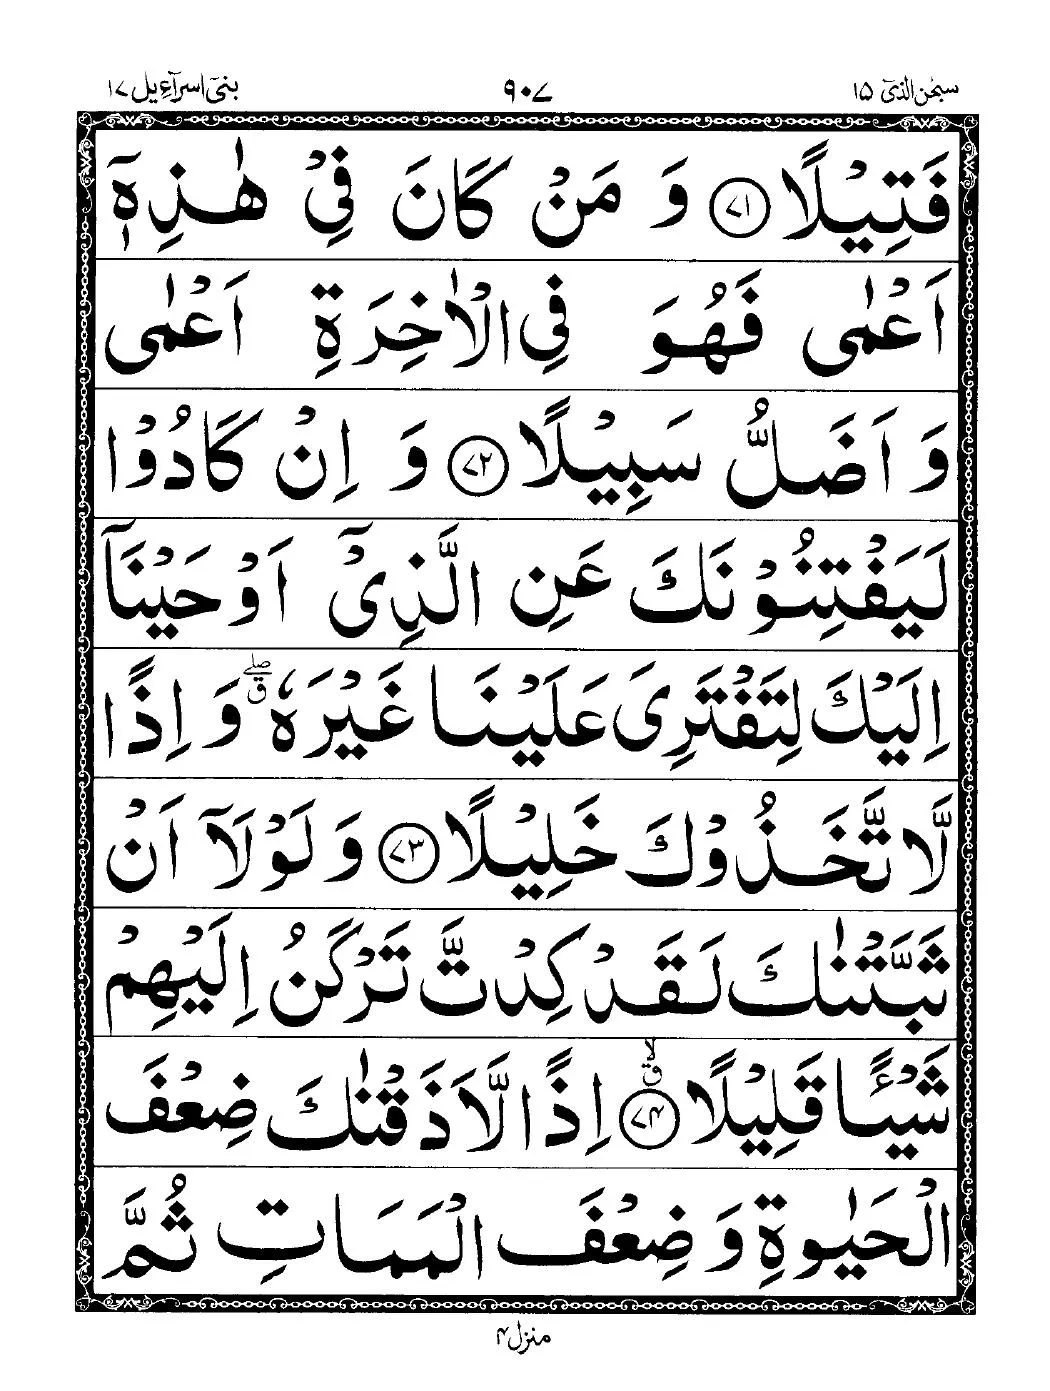 سبحٰن الذیٓ ۱۵ ۹۰۷ بنیٓ اسرآءیل ۱۷
فَتِیْلًا ﴿۷۱﴾ وَ مَنْ كَانَ فِیْ هٰذِهٖۤ
اَعْمٰی فَهُوَ فِی الْاٰخِرَةِ اَعْمٰی
وَ اَضَلُّ سَبِیْلًا ﴿۷۲﴾ وَ اِنْ كَادُوْا
لَیَفْتِنُوْنَكَ عَنِ الَّذِیْۤ اَوْحَیْنَاۤ
اِلَیْكَ لِتَفْتَرِیَ عَلَیْنَا غَیْرَهٗ ۖۗ وَ اِذًا
لَّا تَّخَذُوْكَ خَلِیْلًا ﴿۷۳﴾ وَ لَوْلَاۤ اَنْ
ثَبَّتْنٰكَ لَقَدْ كِدْتَّ تَرْكَنُ اِلَیْهِمْ
شَیْـًٔا قَلِیْلًا ﴿۷۴﴾ ۙۗ اِذًا لَّاَذَقْنٰكَ ضِعْفَ
الْحَیٰوةِ وَ ضِعْفَ الْمَمَاتِ ثُمَّ
منزل ۴